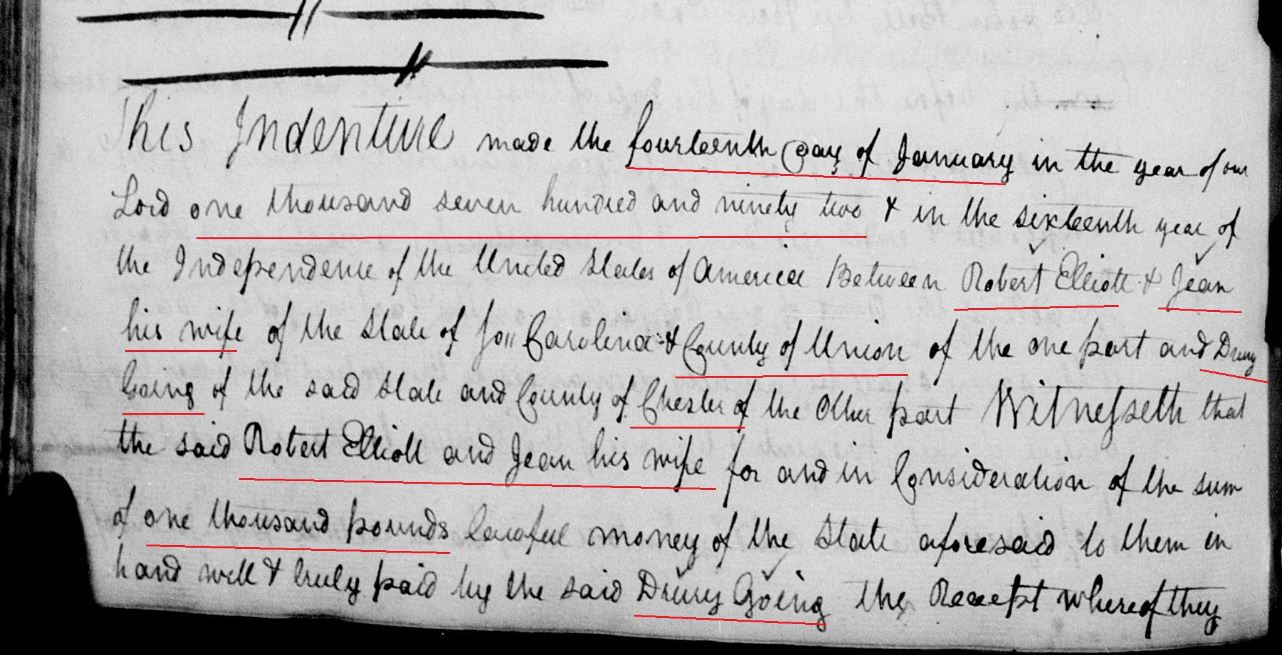 This Indenture made the fourteenth Day of January in the year of our
Lord one thousand seven hundred and ninety two & in the sixteenth year of
the Independence of the United States of America Between Robert Elliott & Jean
his wife of the State of So Carolina & County of Union of the one part and Drury
Going of the said State and County of Chester of the Other part Witnesseth that
the said Robert Elliott and Jean his wife for and in Consideration of the sum
of one thousand pounds lawful money of the State aforesaid to them in
hand well & truly paid by the said Drury Going the Receept whereof they